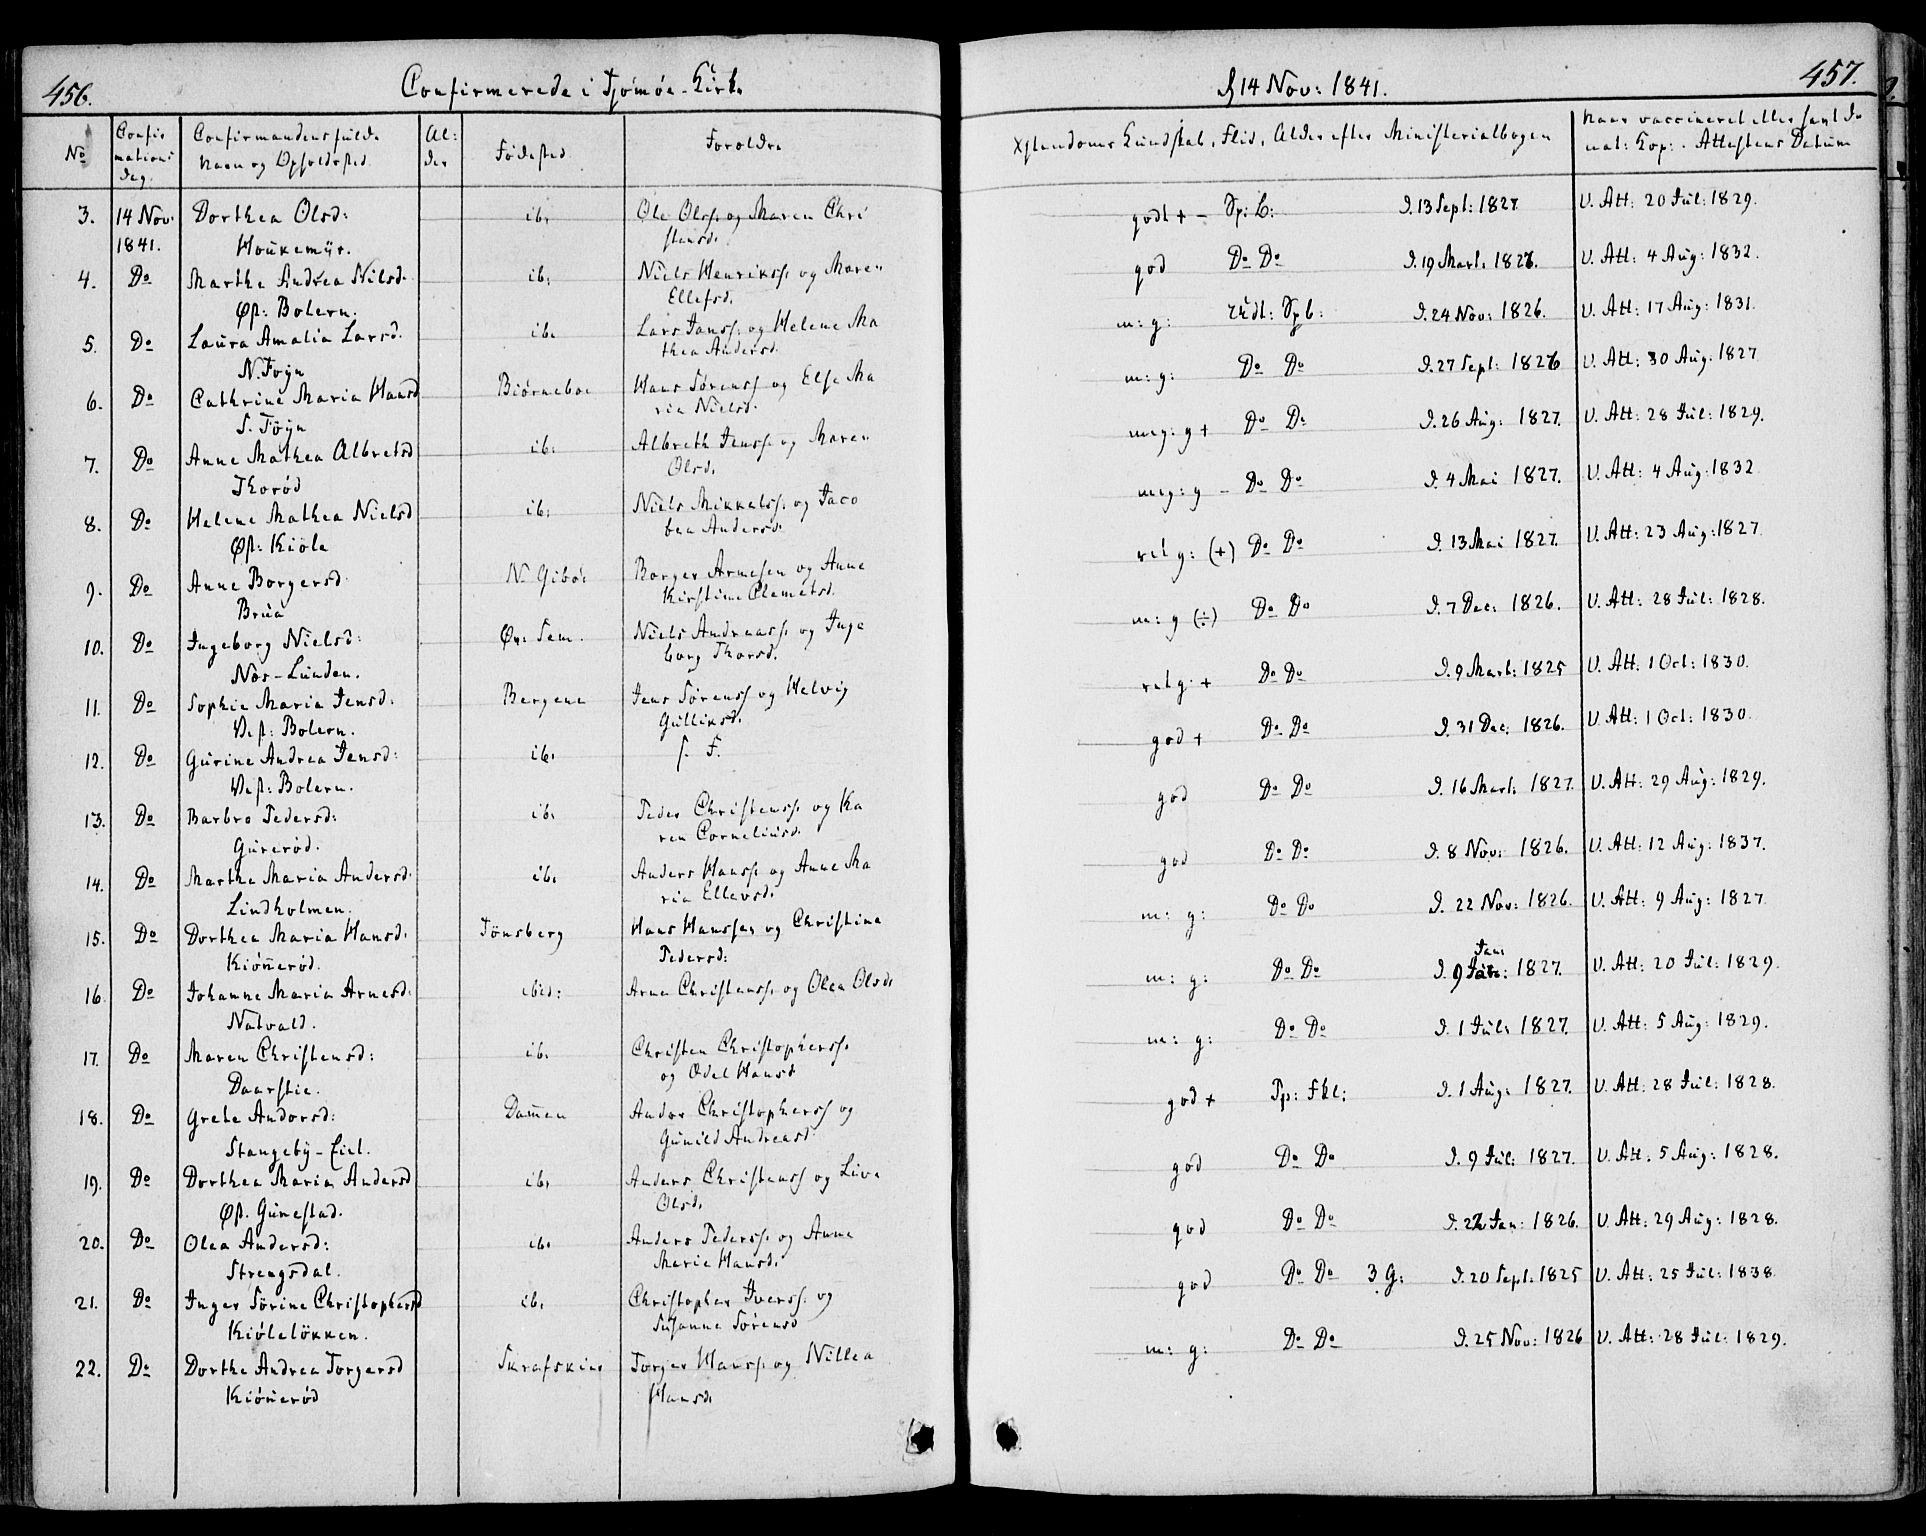 456.
Confirmerede i Tjömöe Kirke
№
Confirmations Dag.
Confirmandens fulde Navn og Opholdsted
Alder
Födested
Foreldre
3. 14 Nov: 1841. Dorthea Olsd: ib: Ole Olss. og Maren Chri
Houkemÿr. stensd.
4. Do Marthe Andrea Nilsd. ib: Niels Henrikss. og Maren
Øst: Bolern. Ellefsd.
5. Do Laura Amalia Larsd. ib. Lars Janss: og Helene Ma
N. Foyn thea Andersd.
6. Do Cathrine Maria Hansd Biörneboe Hans Sörenss. og Else Ma
S. Foyn ria Nielsd.
7. Do Anne Mathea Albretsd ib. Albreth Jenss. og Maren
Thorød Olsd.
8. Do Helene Mathea Nielsd ib: Niels Mikkelss. og Jaco
Øst: Kiøle bea Andersd.
9. Do Anne Borgersd N. Giböe Borger Arnesen og Anne
Brua Kirstine Clemetsd.
10. Do Ingeborg Nielsd: Øv: Sem. Niels Andreass. og Inge
Nos-Lunden. borg Thorsd.
11. Do Sophie Maria Jensd: Bergene Jens Sörenss. og Helvig
Vest: Bolern. Gulliksd.
12. Do Gurine Andrea Jensd: ib. s. F.
Vest: Bolern.
13. Do Barbro Pedersd: ib. Peder Christenss. og Ka
Gurerød. ren Corneliusd.
14. Do Marthe Maria Andersd. ib. Anders Hanss. og Anne Ma
Lindholmen. ria Ellevsd.
15. Do Dorthea Maria Hansd. Tönsberg Hans Hanssen og Christine
Kiönnerød. Pedersd:
16. Do Johanne Maria Arnesd. ibid: Arne Christenss. og Olea Olsd.
Natvald.
17. Do Maren Christensd: ib. Christen Christophers.
Daarstie. og Odel Hansd
18. Do Grete Andorsd: Dammen Andor Christopherss og
Stangebÿ-Eiet. Gunild Andreasd.
19. Do Dorthea Maria Andersd ib. Anders Christenss og Live
Øst. Gunestad. Olsd.
20. Do Olea Andersd: ib. Anders Pederss. og Anne
Strengsdal. Marie Hansd.
21. Do Inger Sörine Christophersd ib. Christopher Iverss. og
Kiöleløkken. Susanne Sörensd
22. Do Dorthe Andrea Torgersd Skrafskier Torger Hanss. og Nillea
Kiönnerød Hansd.
d 14 Nov: 1841.
457.
Xstendoms Kundskab, Flid, Alder efter Ministerialbogen
Naar vaccineret eller havt de
nat: Kop: . Attestens Datum
godt + - Sp: b: d. 13 Sept: 1827 V. Att: 20 Jul: 1829.
god Do Do d. 19 Mart: 1826. V. Att: 4 Aug: 1832.
m: g: Spb: d. 24 Nov: 1826. V. Att: 17 Aug: 1831.
m: g: Do Do d. 27 Sept: 1826 V. Att: 30 Aug: 1827
meg: g + Do Do d. 26 Aug: 1827. V. Att: 28 Jul: 1829.
meg: g - Do Do d. 4 Mai 1827. V. Att: 4 Aug: 1832
vel g: (+) Do Do d. 13 Mai 1827. V. Att: 23 Aug: 1827
m: g (÷) Do Do d. 7 Dec: 1826. V. Att: 28 Jul: 1828.
vel g: + Do Do d. 9 Mart: 1825 V. Att: 1 Oct: 1830.
god + Do Do d. 31 Dec: 1826. V. Att: 1 Oct: 1830.
god Do Do d. 16 Mart: 1827. V. Att: 29 Aug: 1829.
god Do Do d. 8 Nov: 1826. V. Att: 12 Aug: 1837.
m: g: Do Do d. 22 Nov: 1826. V. Att: 9 Aug: 1827
m: g: Do Do d. 9 Jan: 1827. V. Att: 20 Jul: 1829.
m: g: Do Do d. 1 Jul: 1827. V. Att: 5 Aug: 1829.
god + Sp: Fbl: d. 1 Aug: 1827. V. Att: 28 Jul: 1828.
god Do Do d. 9 Jul: 1827. V. Att. 5 Aug: 1828.
god Do Do Jan: 1826. V. Att: 29 Aug: 1828.
god Do Do 3 G: d. 20 Sept: 1825 V. Att: 25 Jul: 1838.
m: g: Do Do d. 25 Nov: 1826 V. Att: 28 Jul: 1829.